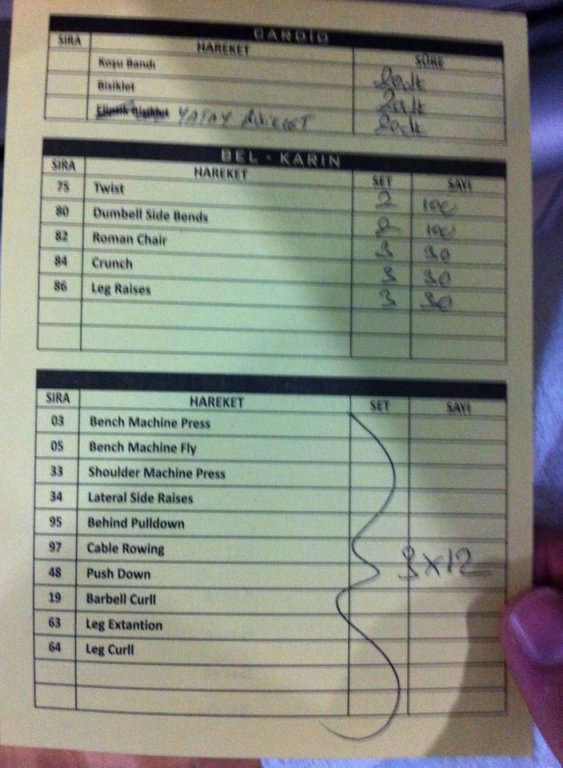 CARDİO
SIRA HAREKET SÜRE
Koşu Bandı 20dk
Bisiklet 20dk
Eliptik Bisiklet YATAY BİSİKLET 20dk
BEL - KARIN
SIRA HAREKET SET SAYI
75 Twist 2 100
80 Dumbell Side Bends 2 100
82 Roman Chair 3 30
84 Crunch 3 30
86 Leg Raises 3 30
SIRA HAREKET SET SAYI
03 Bench Machine Press
05 Bench Machine Fly
33 Shoulder Machine Press
34 Lateral Side Raises
95 Behind Pulldown
97 Cable Rowing
48 Push Down 3x12
19 Barbell Curll
63 Leg Extantion
64 Leg Curll